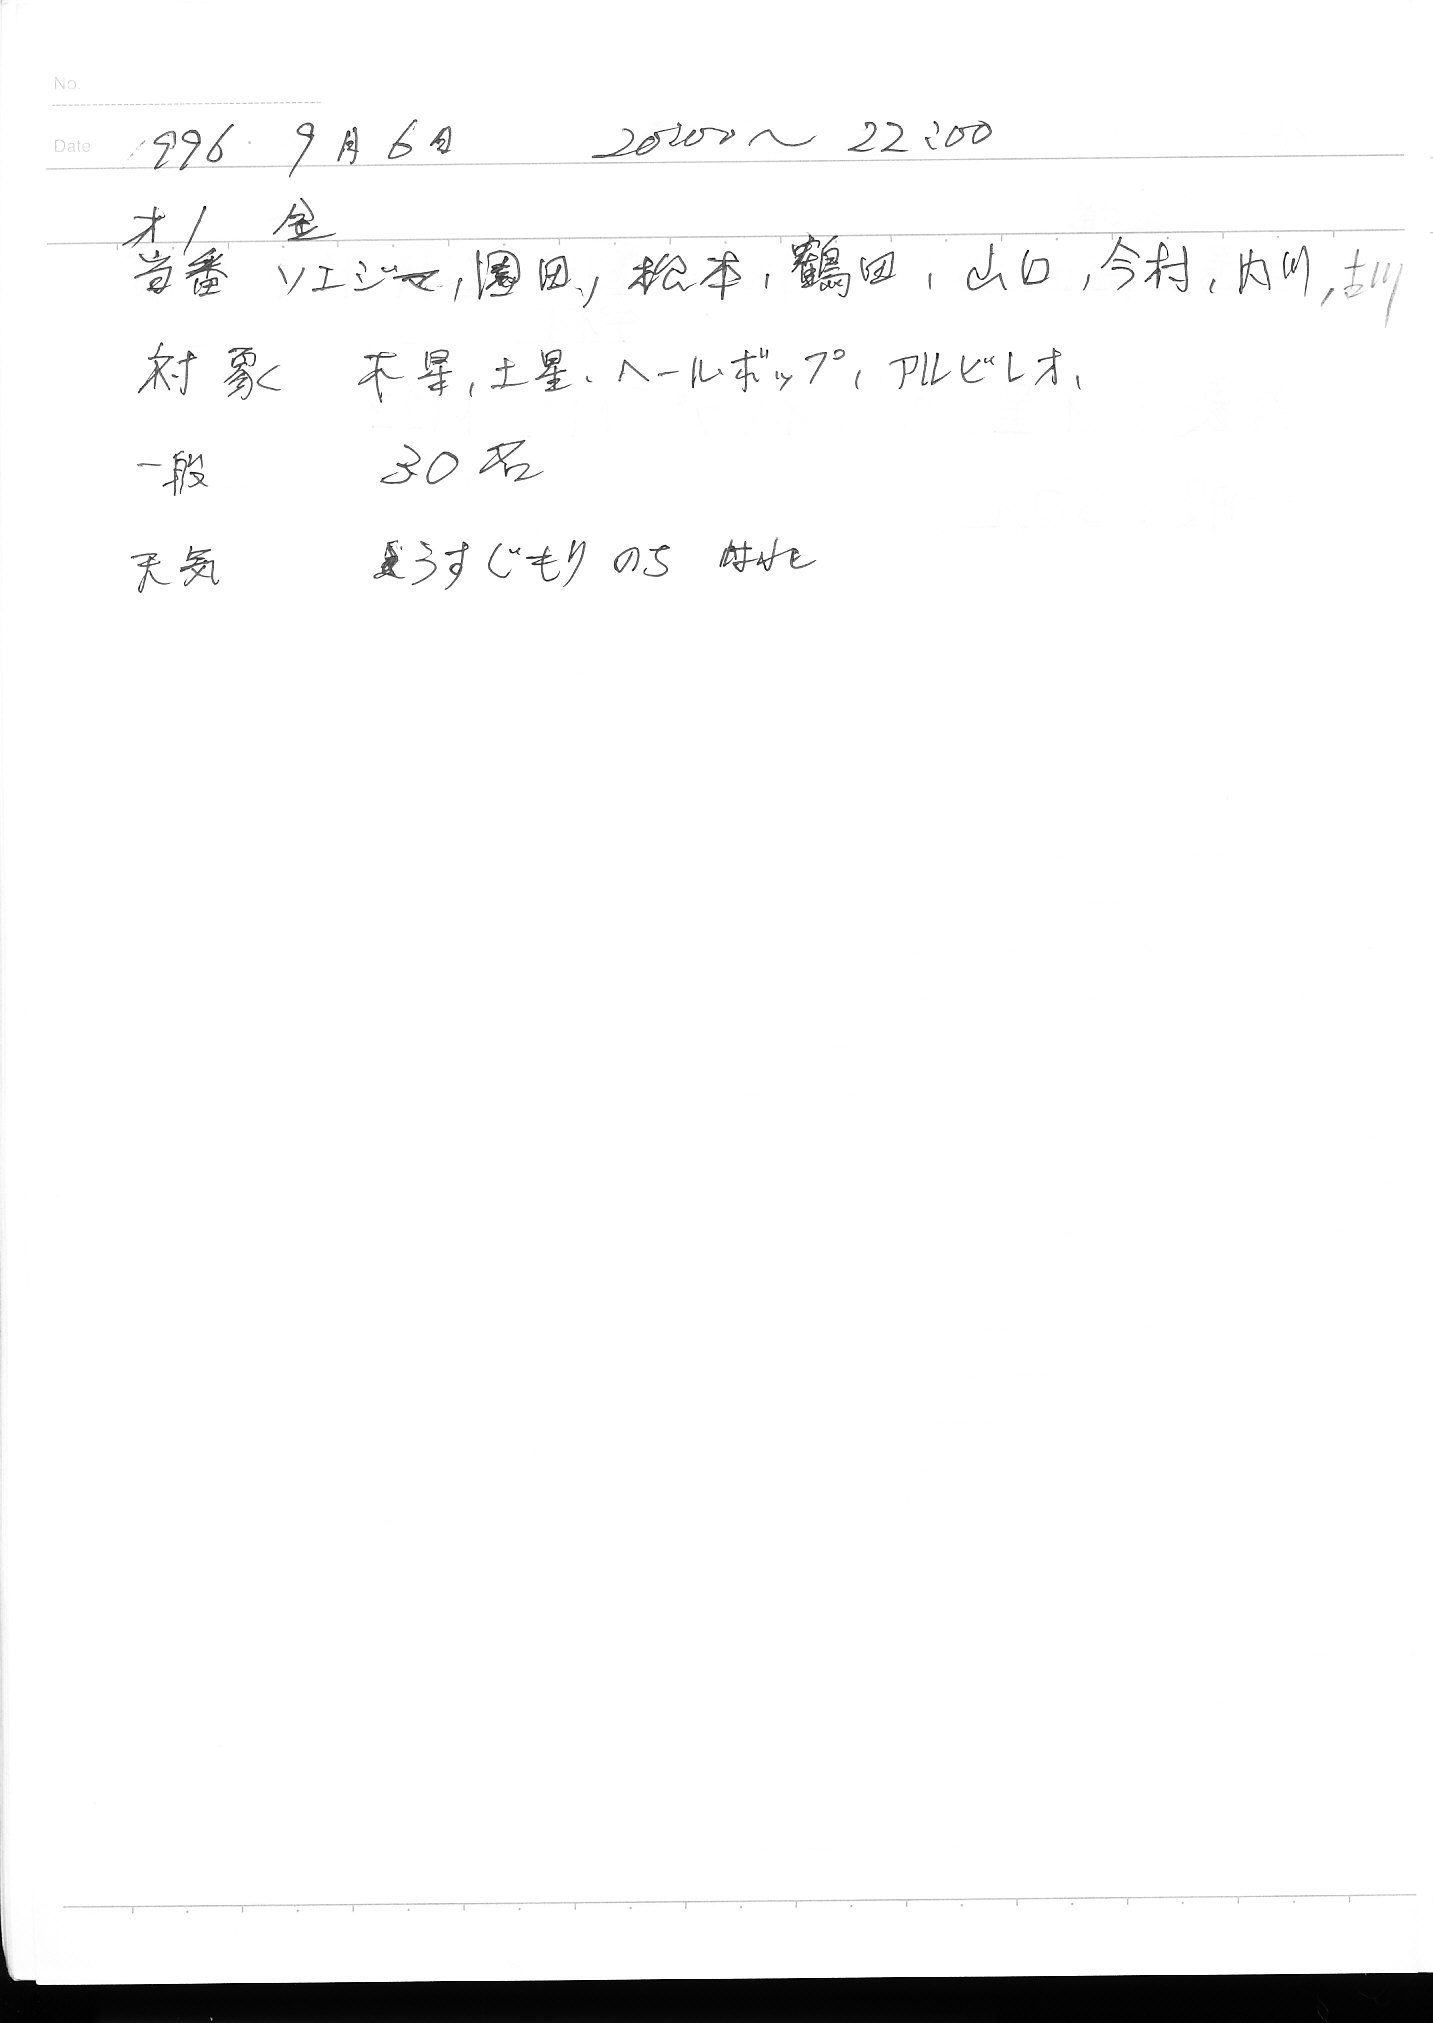 No.
Date 1996 9月6日 20:00〜 22:00
才1 金
当番 ソエジマ, 園田, 松本, 鶴田, 山口, 今村, 内川, 古川
対象 木星, 土星、ヘールボップ, アルビレオ,
一般 30名
天気 うすぐもりのち はれ